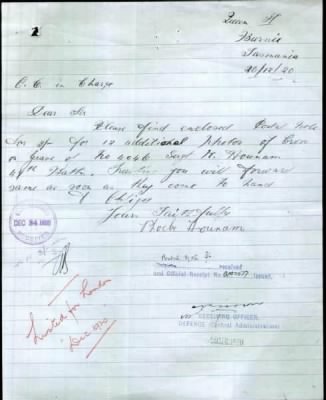 Queen St
Burnie
Tasmania
20/12/20
O. C. in Charge
Dear Sir
Please find enclosed Postal Note
for 3/- for 12 additional photos of Cross
on grave of No 4046 Sergt W. Hounam
Battn. Trusting you will forward
same as soon as they come to hand
I Oblige
Yours Faithfully
Hounam
DEC 24 1920
RECEIVED
Postal Note 3/-
received
and Official Receipt No. issued.
RECEIVING OFFICER,
DEFENCE (Central Administration)
Listed for London
Dec 1920